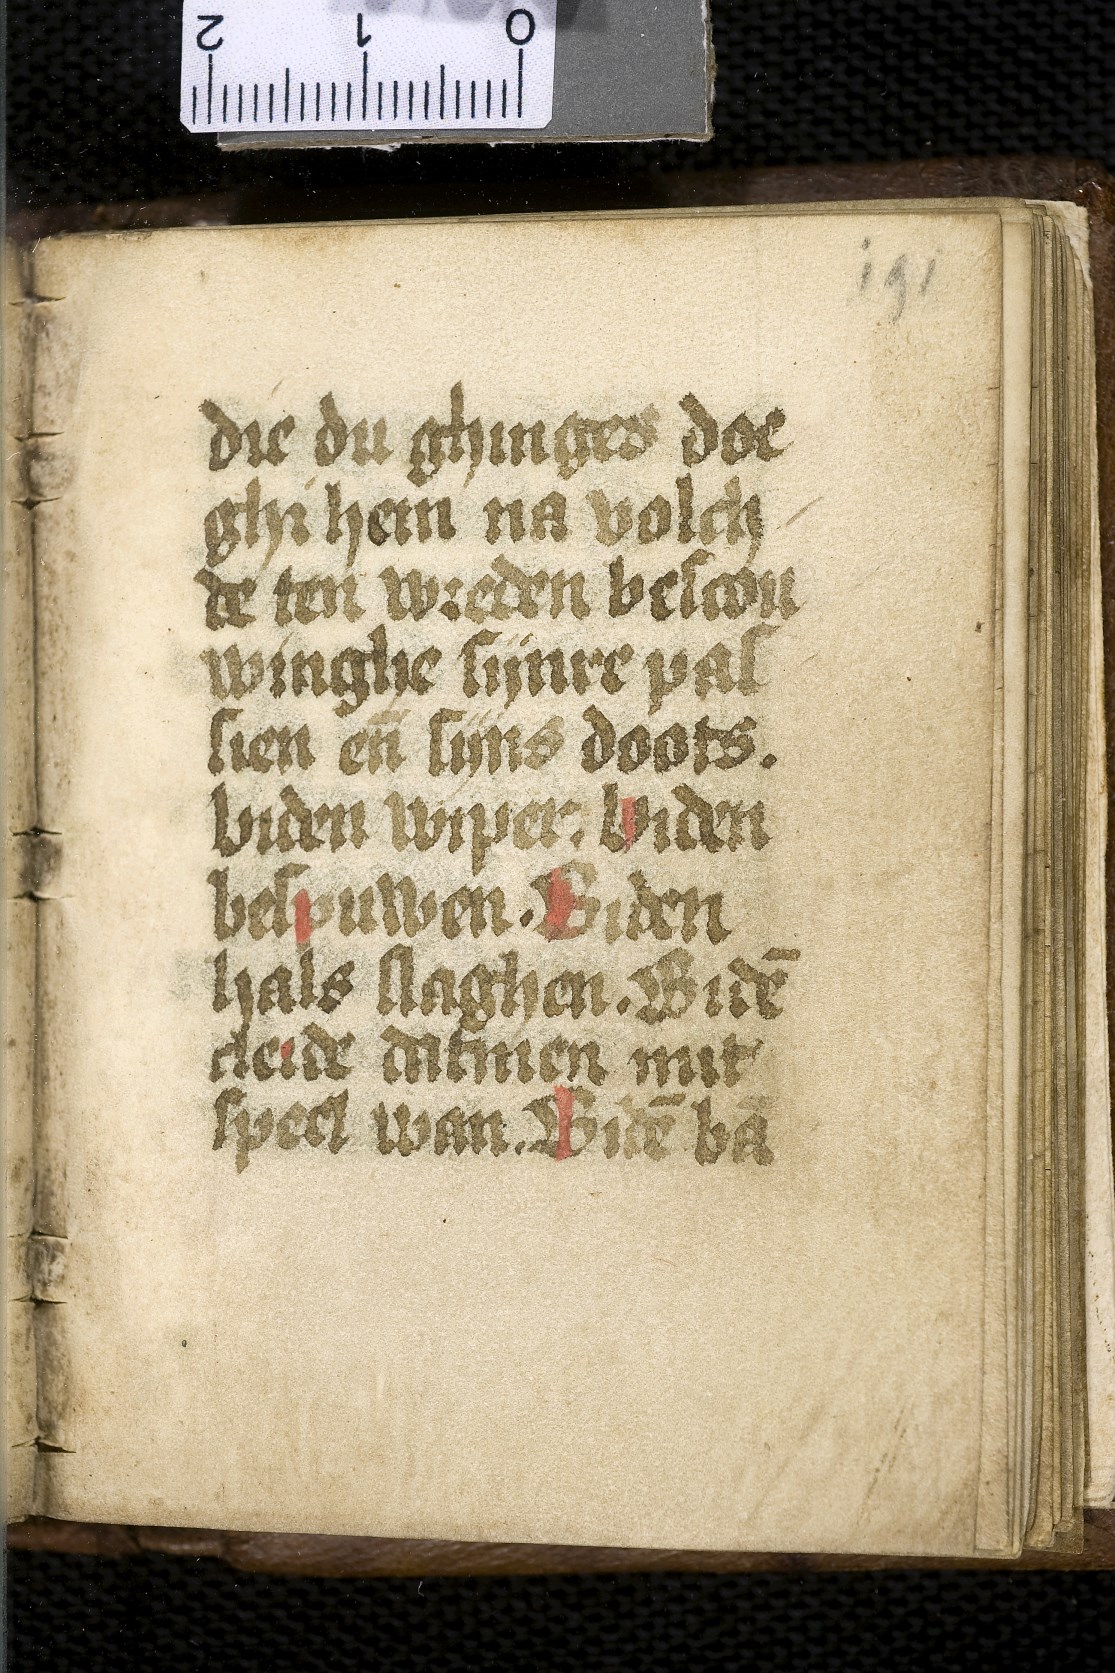 2 1 0
191
die du ghinges doe
ghi hem na volch
de ten wreden bescou
winghe sijnre pas
sien en̄ sijns doots.
biden wiper. biden
bespuwen. Biden
hals slaghen. Bidē
cleide datmen mit
spect wan. Bidē bā